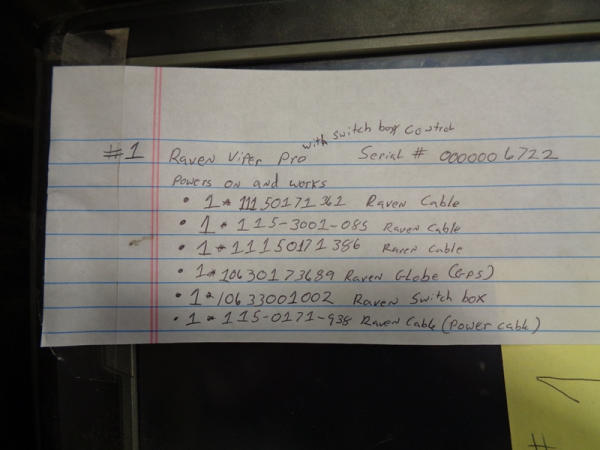 #1 Raven Viper Pro with switch box control Serial # 000000 6722
Powers on and works
• 1* 11150171361 Raven Cable
• 1* 115-3001-085 Raven Cable
• 1*11150171386 Raven Cable
• 1*10630173689 Raven Globe (GPS)
• 1*10633001002 Raven Switch box
• 1* 115-0171-938 Raven Cable (power cable)
#